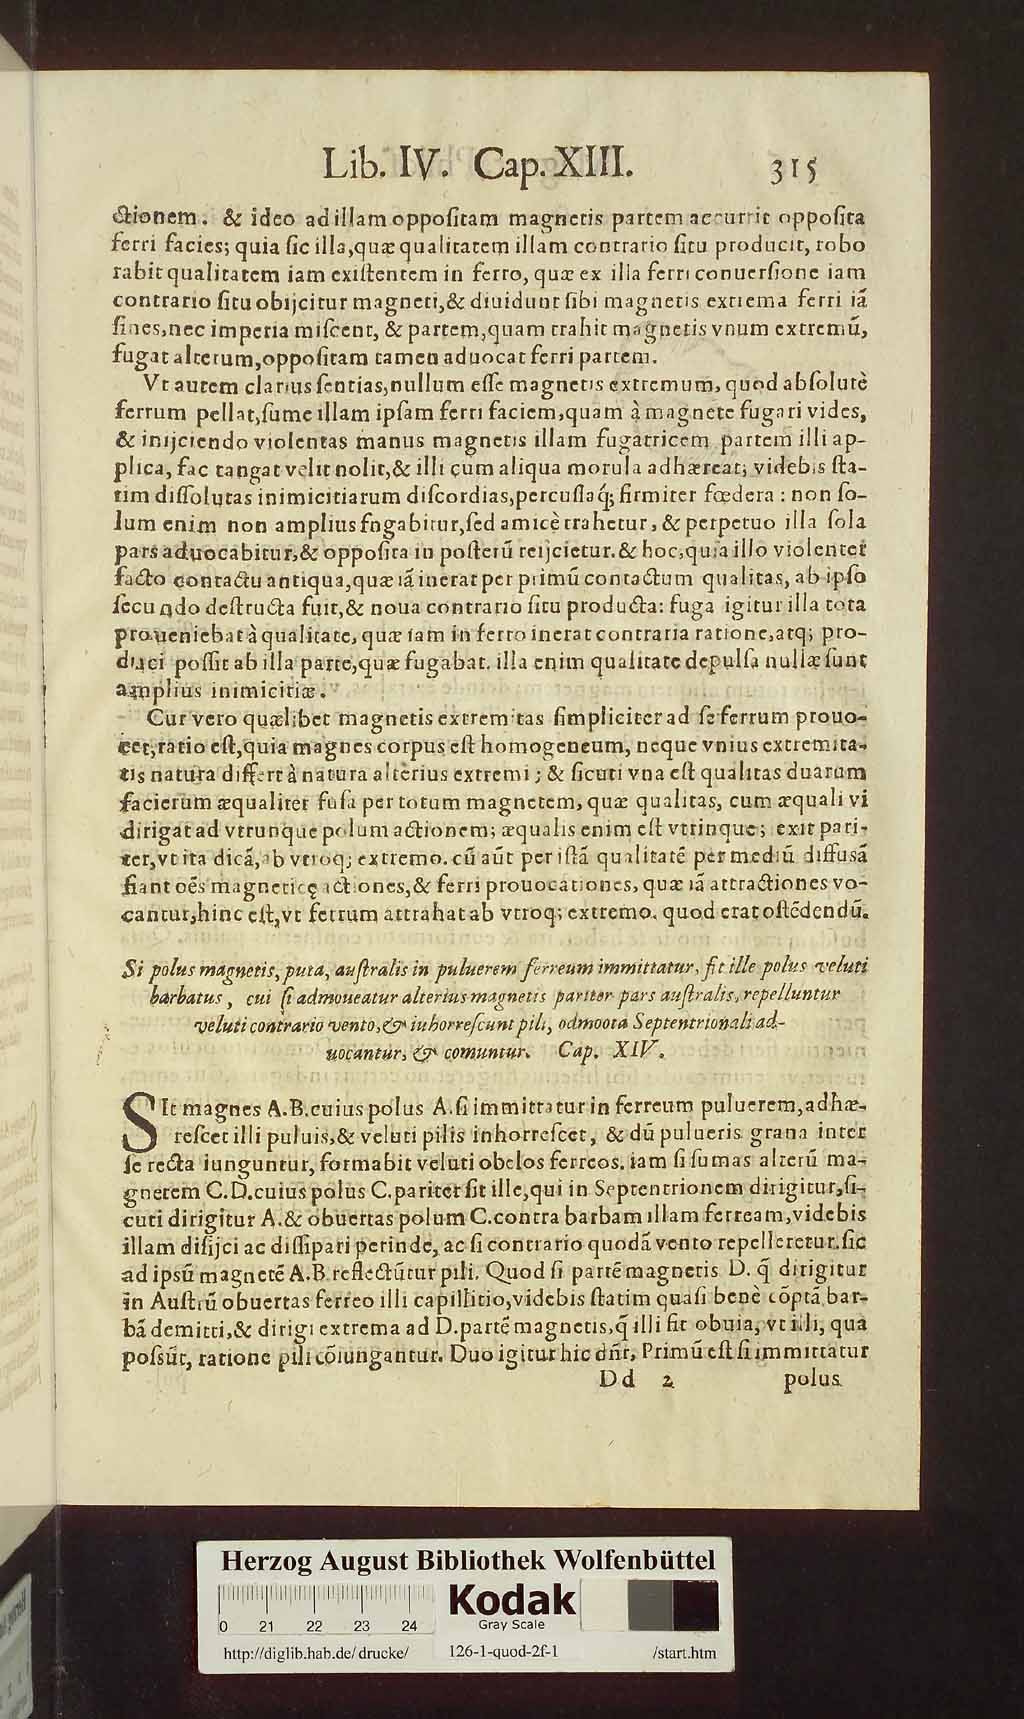 Lib. IV. Cap. XIII. 315
ctionem. & ideo ad illam oppoſitam magnetis partem accurrit oppoſita
ferri facies; quia ſic illa, quæ qualitatem illam contrario ſitu producit, robo
rabit qualitatem iam exiſtentem in ferro, quæ ex illa ferri conuerſione iam
contrario ſitu obijcitur magneti, & diuidunt ſibi magnetis extrema ferri iã
fines, nec imperia miſcent, & partem, quam trahit magnetis vnum extremũ,
fugat alterum, oppoſitam tamen aduocat ferri partem.
Vt autem clarius ſentias, nullum eſſe magnetis extremum, quod abſolutè
ferrum pellat, ſume illam ipſam ferri faciem, quam à magnete fugari vides,
& inijciendo violentas manus magnetis illam fugatricem partem illi ap-
plica, fac tangat velit nolit, & illi cum aliqua morula adhæreat; videbis ſta-
tim diſſolutas inimicitiarum diſcordias, percuſſaq́; firmiter fœdera : non ſo-
lum enim non amplius fngabitur, ſed amicè trahetur, & perpetuo illa ſola
pars aduocabitur, & oppoſita in poſterũ reijcietur. & hoc, quia illo violenter
facto contactu antiqua, quæ iã inerat per primũ contactum qualitas, ab ipſo
ſecundo deſtructa fuit, & noua contrario ſitu producta: fuga igitur illa tota
proueniebat à qualitate, quæ iam in ferro inerat contraria ratione, atq; pro-
duci poſſit ab illa parte, quæ fugabat. illa enim qualitate depulſa nullæ ſunt
amplius inimicitiæ.
Cur vero quælibet magnetis extremitas ſimpliciter ad ſe ferrum prouo-
cet, ratio eſt, quia magnes corpus eſt homogeneum, neque vnius extremita-
tis natura differt à natura alterius extremi; & ſicuti vna eſt qualitas duarum
facierum æqualiter fuſa per totum magnetem, quæ qualitas, cum æquali vi
dirigat ad vtrunque polum actionem; æqualis enim eſt vtrinque; exit pari-
ter, vt ita dicã, ab vtroq; extremo. cũ aũt per iſtã qualitatẽ per mediũ diffusã
fiant oẽs magneticę actiones, & ferri prouocationes, quæ iã attractiones vo-
cantur, hinc eſt, vt ferrum attrahat ab vtroq; extremo. quod erat oſtẽdendũ.
Si polus magnetis, puta, auſtralis in puluerem ferreum immittatur, fit ille polus veluti
barbatus, cui ſi admoueatur alterius magnetis pariter pars auſtralis, repelluntur
veluti contrario vento, & inhorreſcunt pili, odmoota Septentrionali ad-
uocantur, & comuntur. Cap. XIV.
SIt magnes A.B. cuius polus A. ſi immittatur in ferreum puluerem, adhæ-
reſcet illi puluis, & veluti pilis inhorreſcet, & dũ pulueris grana inter
ſe recta iunguntur, formabit veluti obelos ferreos. iam ſi ſumas alterũ ma-
gnetem C.D. cuius polus C. pariter ſit ille, qui in Septentrionem dirigitur, ſi-
cuti dirigitur A. & obuertas polum C. contra barbam illam ferream, videbis
illam diſijci ac diſſipari perinde, ac ſi contrario quodã vento repelleretur. ſic
ad ipsũ magnetẽ A.B. reflectũtur pili. Quod ſi partẽ magnetis D. q̃ dirigitur
in Auſtrũ obuertas ferreo illi capillitio, videbis ſtatim quaſi benè cõptã bar-
bã demitti, & dirigi extrema ad D. partẽ magnetis, q̃ illi fit obuia, vt illi, qua
poſsũt, ratione pili cõiungantur. Duo igitur hic dñr, Primũ eſt ſi immittatur
Dd 2 polus
Herzog August Bibliothek Wolfenbüttel
0 21 22 23 24
Kodak
Gray Scale
http://diglib.hab.de/drucke/ 126-1-quod-2f-1 /start.htm